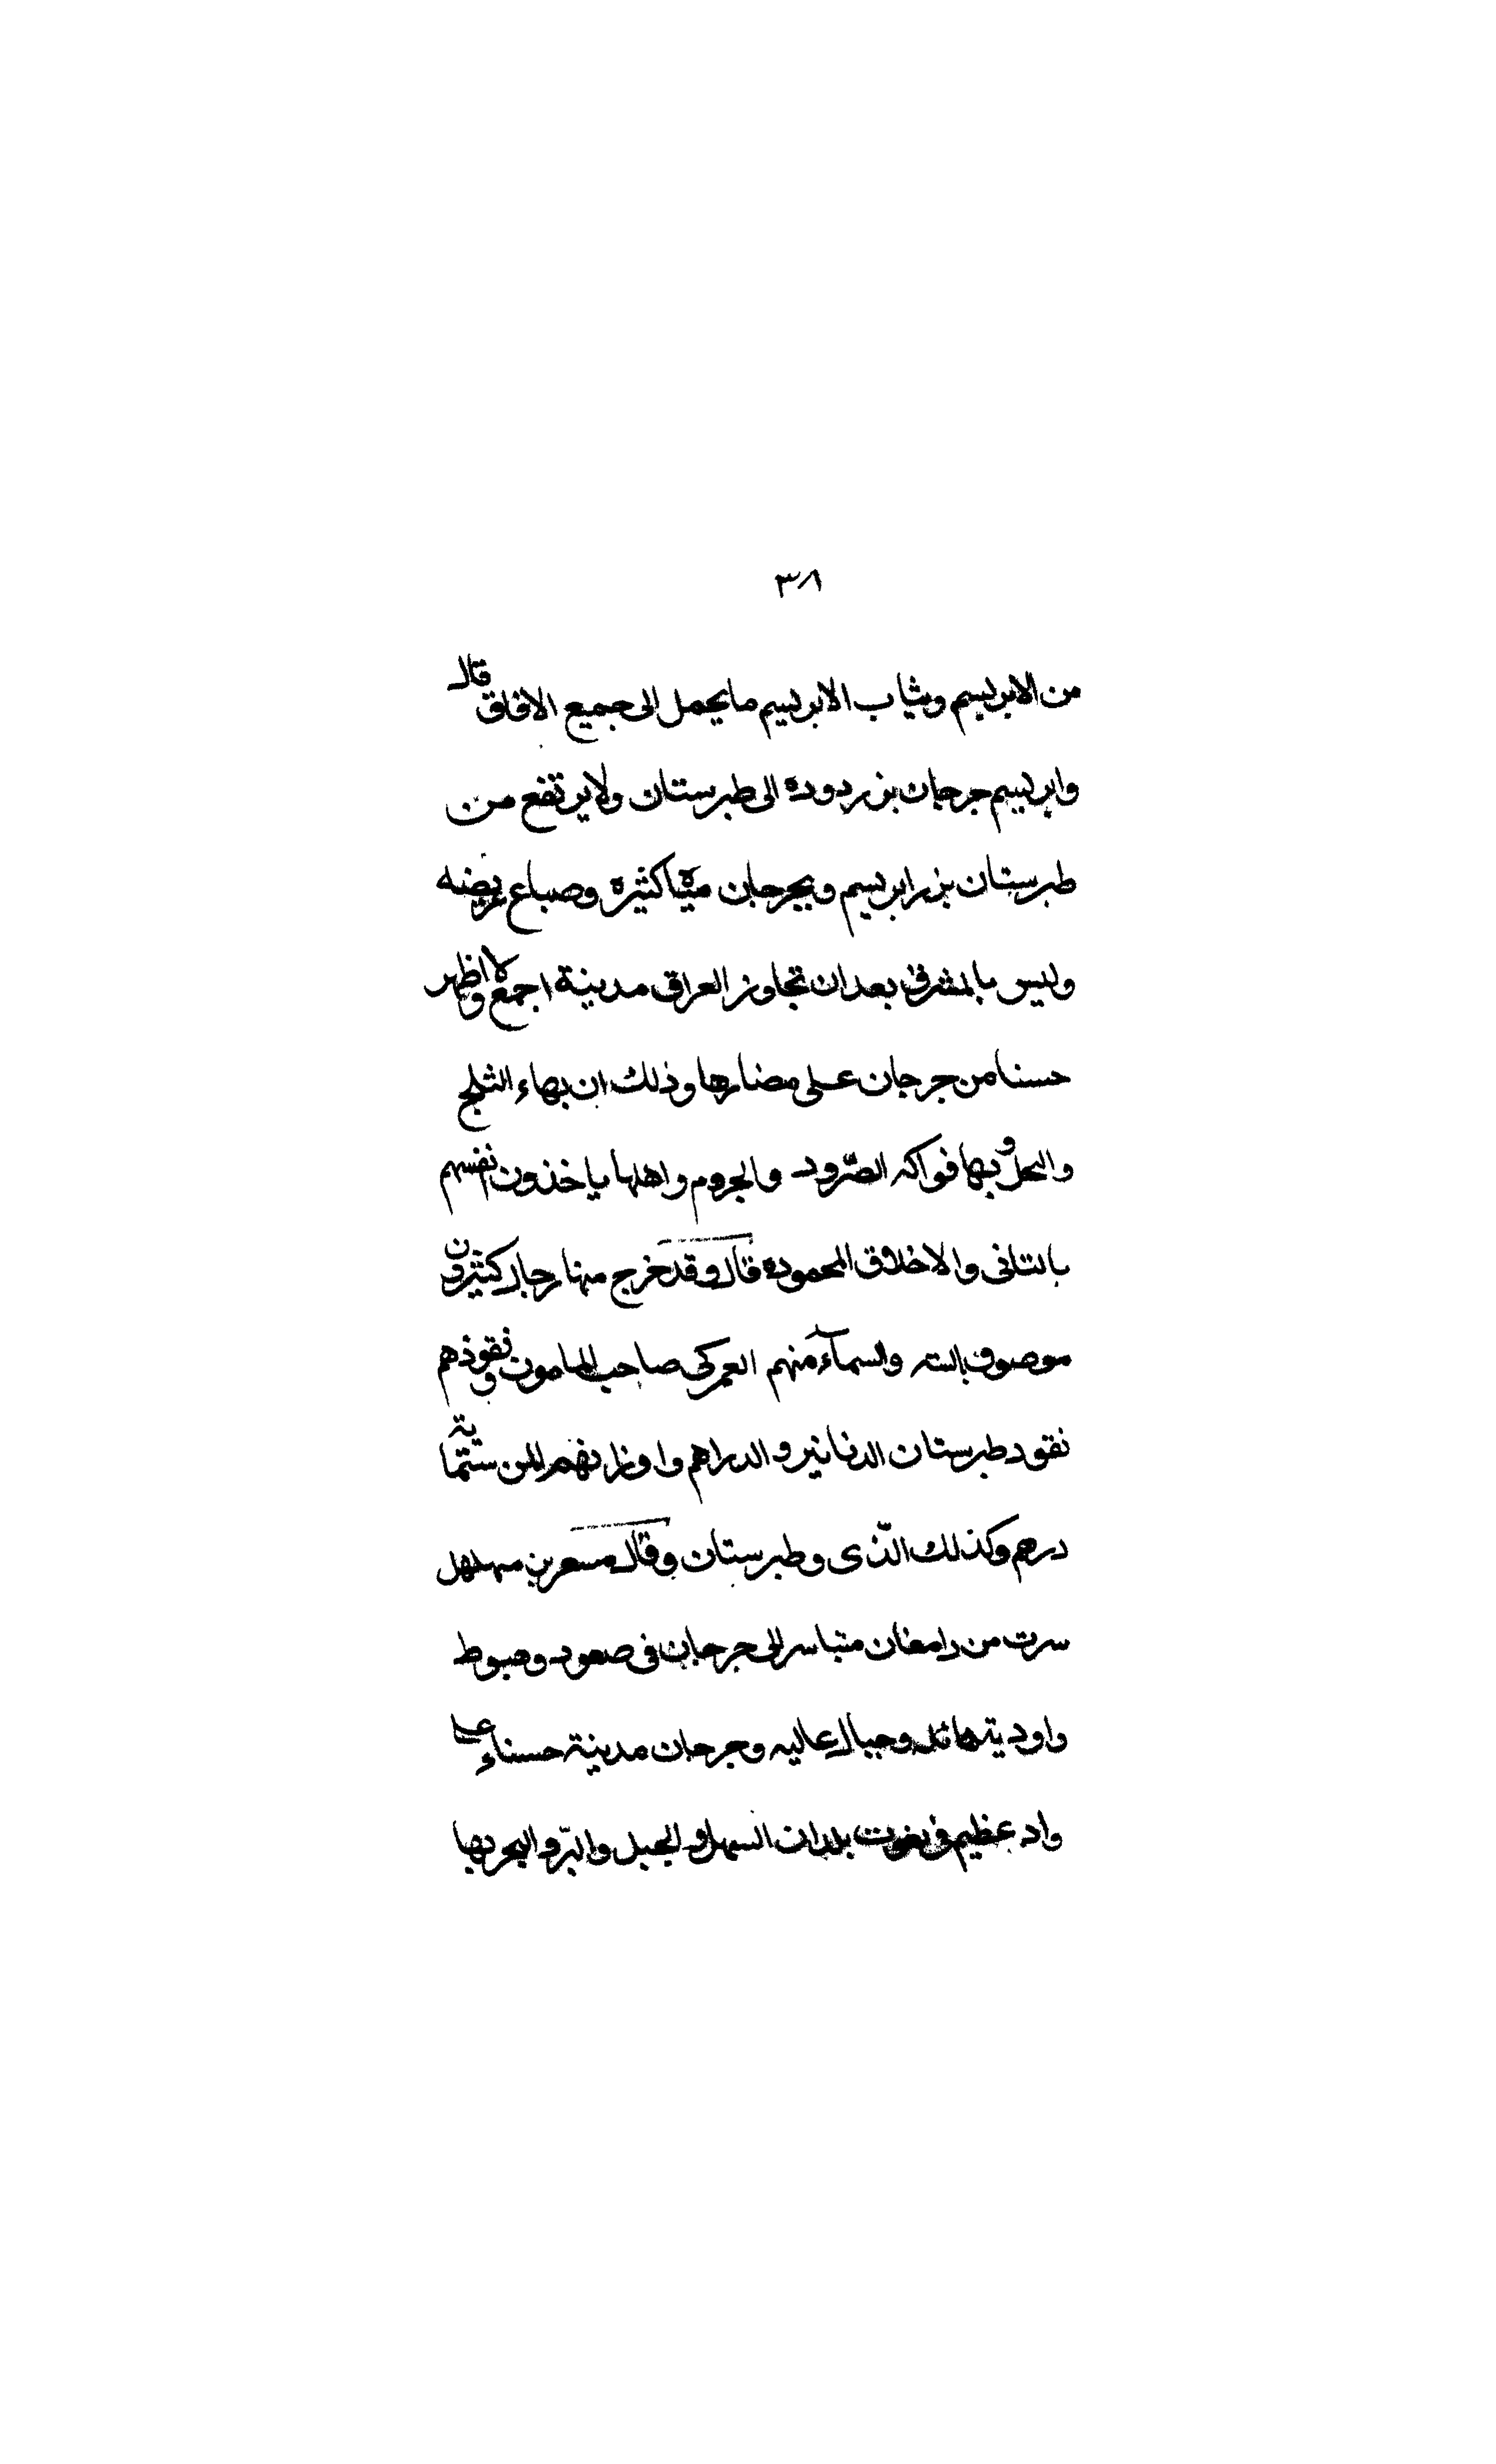 ٣٨
من الابريسم وثياب الابريسم ما يحمل الى جميع الافاق قال
وابريسم جرجان بزر دوده الى طبرستان ولا يرتفع من
طبرستان بزر ابريسم وبجرجان مياه كثيرة وضياع عريضه
وليس بالمشرق بعد ان تجاوز العراق مدينة اجمع ولا اظهر
حسنا من جرجان على مضارها وذلك ان بهاء الثلج
والنخل وبها فواكه الصّرود والجروم واهلها ياخذون انفسهم
بالتانى والاخلاق المحموده قال وقد خرج منها رجال كثيرون
موصوف بالستر والسمآء منهم العمركى صاحب المامون ونقودهم
نقود طبرستان الدنانير والدراهم واوزانهم المن ستماية
درهم وكذلك الذّى وطبرستان وقال مسعر بن مهلهل
سرت من دامغان متياسر الى جرجان فى صعود وهبوط
واودية هائل وجبال عاليه وجرجان مدينة حسناء على
واد عظيم فى ثغور بلدان السهل والجبل والبرّ والبحر بها